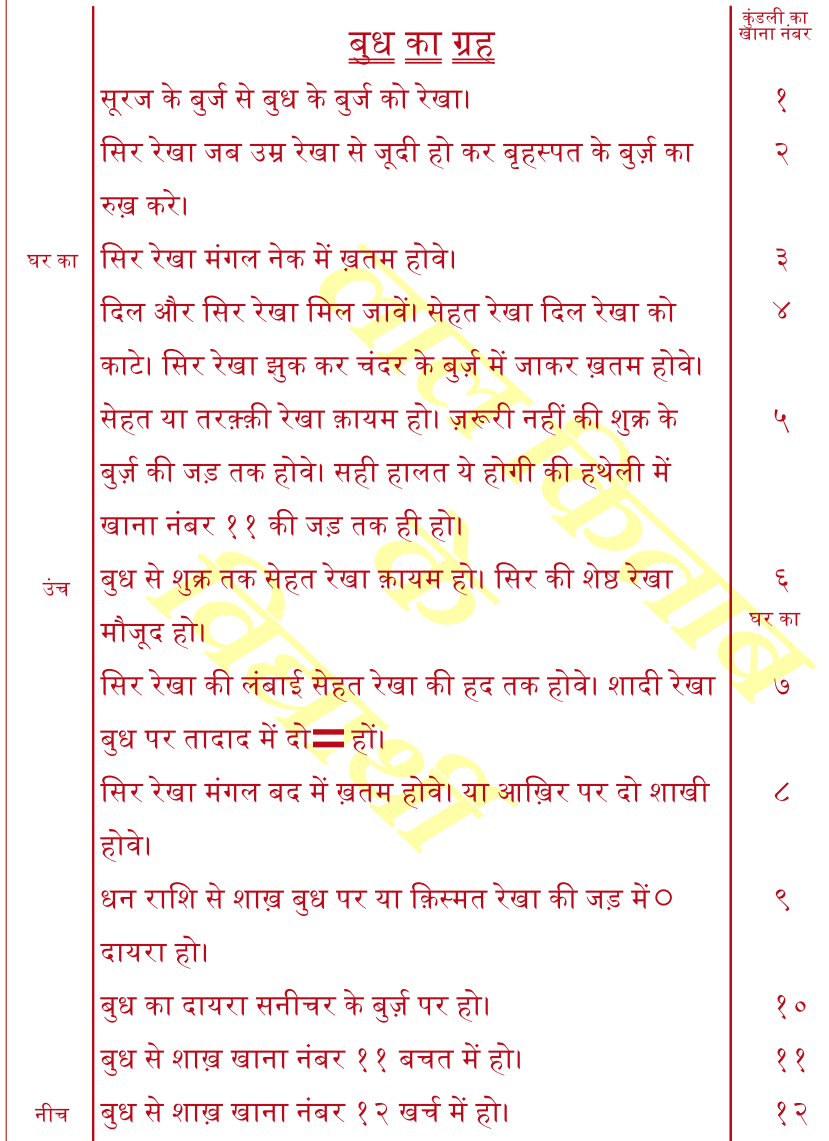 कुंडली का
खाना नंबर
बुध का ग्रह
सूरज के बुर्ज से बुध के बुर्ज को रेखा। १
सिर रेखा जब उम्र रेखा से जूदी हो कर बृहस्पत के बुर्ज़ का २
रुख़ करे।
घर का सिर रेखा मंगल नेक में ख़तम होवे। ३
दिल और सिर रेखा मिल जावें। सेहत रेखा दिल रेखा को ४
काटे। सिर रेखा झुक कर चंदर के बुर्ज़ में जाकर ख़तम होवे।
सेहत या तरक़्क़ी रेखा क़ायम हो। ज़रूरी नहीं की शुक्र के ५
बुर्ज़ की जड़ तक होवे। सही हालत ये होगी की हथेली में
खाना नंबर ११ की जड़ तक ही हो।
उंच बुध से शुक्र तक सेहत रेखा क़ायम हो। सिर की शेष्ठ रेखा ६
मौजूद हो। घर का
सिर रेखा की लंबाई सेहत रेखा की हद तक होवे। शादी रेखा ७
बुध पर तादाद में दो = हों।
सिर रेखा मंगल बद में ख़तम होवे। या आख़िर पर दो शाखी ८
होवे।
धन राशि से शाख़ बुध पर या क़िस्मत रेखा की जड़ में ○ ९
दायरा हो।
बुध का दायरा सनीचर के बुर्ज़ पर हो। १०
बुध से शाख़ खाना नंबर ११ बचत में हो। ११
नीच बुध से शाख़ खाना नंबर १२ खर्च में हो। १२
लाल किताब
के
विद्यार्थी